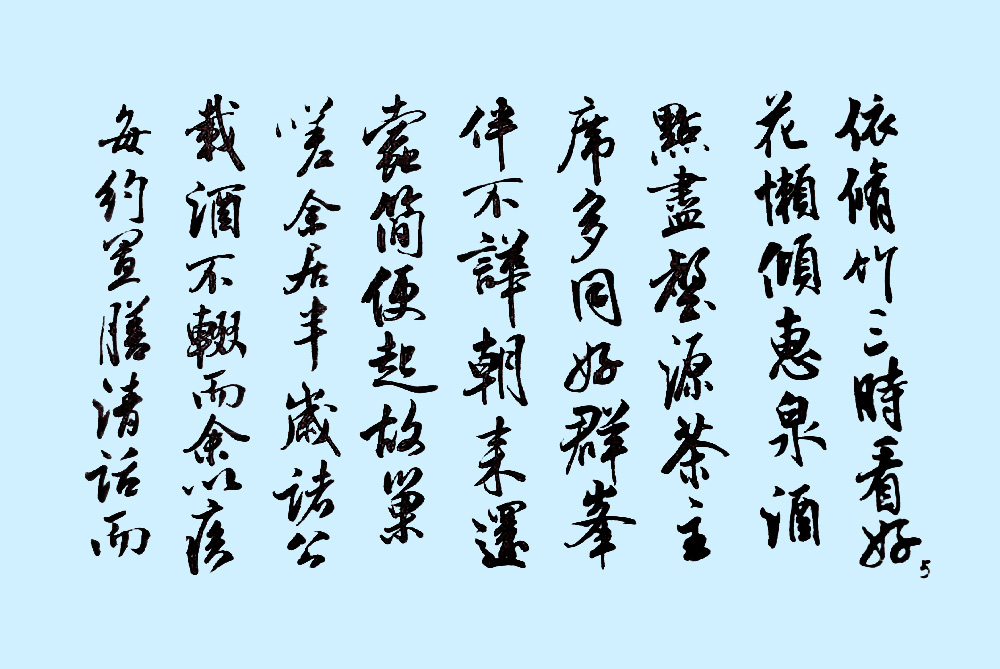 依脩竹三時看好
花懶傾惠泉酒
點盡壑源茶主
席多同好群峯
伴不譁朝来還
蠹簡便起故巢
嗟余居半歲諸公
載酒不輟而余以疾
每約置膳清話而
5